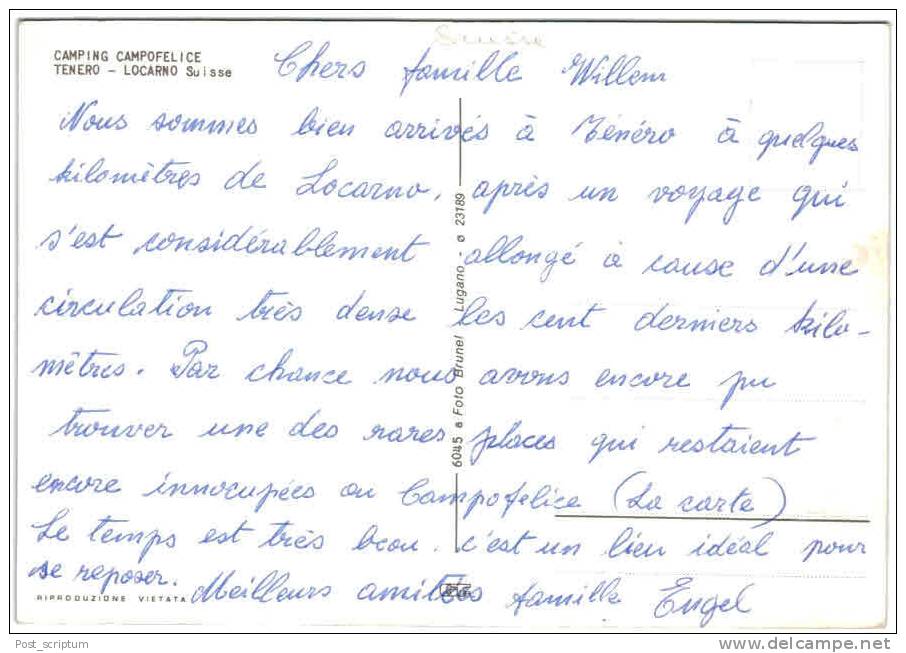 Suisse
CAMPING CAMPOFELICE
TENERO - LOCARNO Suisse
Chers famille Willem
Nous sommes bien arrivés à Ténéro à quelques
kilomètres de Locarno, après un voyage qui
s'est considérablement allongé à cause d'une
circulation très dense les cent derniers kilo-
mètres. Par chance nous avons encore pu
trouver une des rares places qui restaient
encore innocupées au Campofelice (La carte)
Le temps est très beau. c'est un lieu idéal pour
se reposer. Meilleurs amitiés famille Engel
6045 a Foto Brunel Lugano - ø 23189
RIPRODUZIONE VIETATA
Post_scriptum
delcampe.net